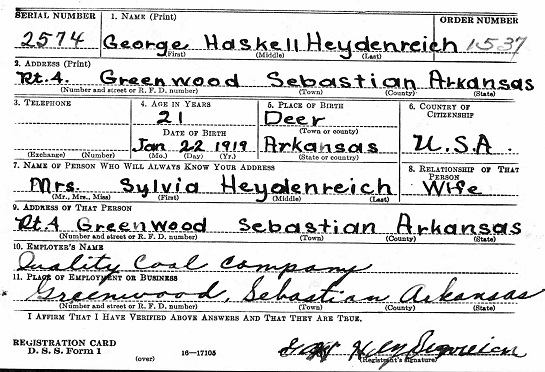 SERIAL NUMBER 1. NAME (Print) ORDER NUMBER
2574 George Haskell Heydenreich 1537
(First) (Middle) (Last)
2. ADDRESS (Print)
Rt.4. Greenwood Sebastian Arkansas
(Number and street or R. F. D. number) (Town) (County) (State)
3. TELEPHONE 4. AGE IN YEARS 5. PLACE OF BIRTH 6. COUNTRY OF CITIZENSHIP
21 Deer
(Town or county)
DATE OF BIRTH
Jan 22 1919 Arkansas U.S.A.
(Exchange) (Number) (Mo.) (Day) (Yr.) (State or country)
7. NAME OF PERSON WHO WILL ALWAYS KNOW YOUR ADDRESS 8. RELATIONSHIP OF THAT PERSON
Mrs. Sylvia Heydenreich Wife
(Mr., Mrs., Miss) (First) (Middle) (Last)
9. ADDRESS OF THAT PERSON
Rt.4 Greenwood Sebastian Arkansas
(Number and street or R. F. D. number) (Town) (County) (State)
10. EMPLOYER'S NAME
Quality Coal Company
11. PLACE OF EMPLOYMENT OR BUSINESS
Greenwood, Sebastian Arkansas
(Number and street or R. F. D. number) (Town) (County) (State)
I AFFIRM THAT I HAVE VERIFIED ABOVE ANSWERS AND THAT THEY ARE TRUE.
REGISTRATION CARD
D. S. S. Form 1 (over) 16—17105 (Registrant's signature)